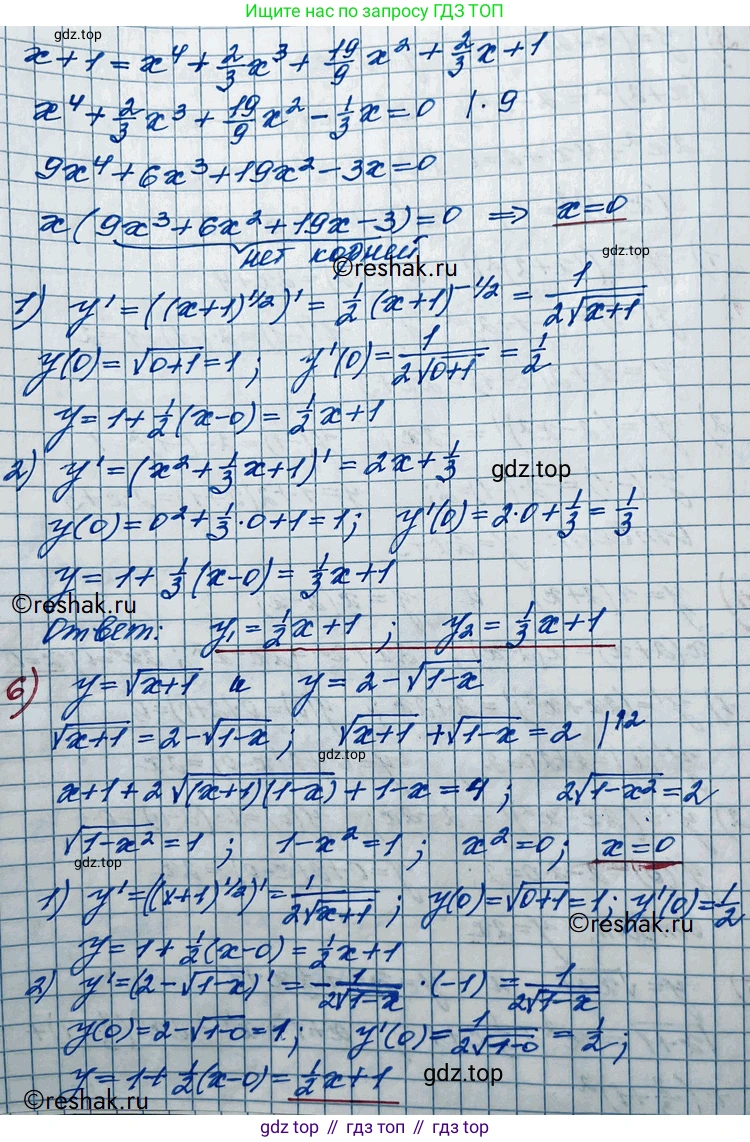 Ищите нас по запросу ГДЗ ТОП
gdz.top
x+1 = x⁴ + 2/3 x³ + 19/9 x² + 2/3 x + 1
x⁴ + 2/3 x³ + 19/9 x² - 1/3 x = 0 | · 9
9x⁴ + 6x³ + 19x² - 3x = 0
x(9x³ + 6x² + 19x - 3) = 0 ⇒ x=0
нет корней
gdz.top
©reshak.ru
1) y' = ((x+1)^1/2)' = 1/2 (x+1)^-1/2 = 1/(2√(x+1))
y(0) = √(0+1) = 1; y'(0) = 1/(2√(0+1)) = 1/2
y = 1 + 1/2 (x-0) = 1/2 x + 1
2) y' = (x² + 1/3 x + 1)' = 2x + 1/3
gdz.top
y(0) = 0² + 1/3 · 0 + 1 = 1; y'(0) = 2·0 + 1/3 = 1/3
y = 1 + 1/3 (x-0) = 1/3 x + 1
©reshak.ru
Ответ: y₁ = 1/2 x + 1; y₂ = 1/3 x + 1
б) y = √(x+1) и y = 2 - √(1-x)
√(x+1) = 2 - √(1-x); √(x+1) + √(1-x) = 2 |↑2
gdz.top
x+1+2√((x+1)(1-x)) + 1-x = 4; 2√(1-x²) = 2
√(1-x²) = 1; 1-x² = 1; x² = 0; x=0
1) y' = ((x+1)^1/2)' = 1/(2√(x+1)); y(0) = √(0+1) = 1; y'(0) = 1/2
©reshak.ru
y = 1 + 1/2 (x-0) = 1/2 x + 1
2) y' = (2 - √(1-x))' = - 1/(2√(1-x)) · (-1) = 1/(2√(1-x))
y(0) = 2 - √(1-0) = 1; y'(0) = 1/(2√(1-0)) = 1/2;
y = 1 + 1/2 (x-0) = 1/2 x + 1
gdz.top
©reshak.ru
gdz.top // gdz.top // gdz.top // gdz.top